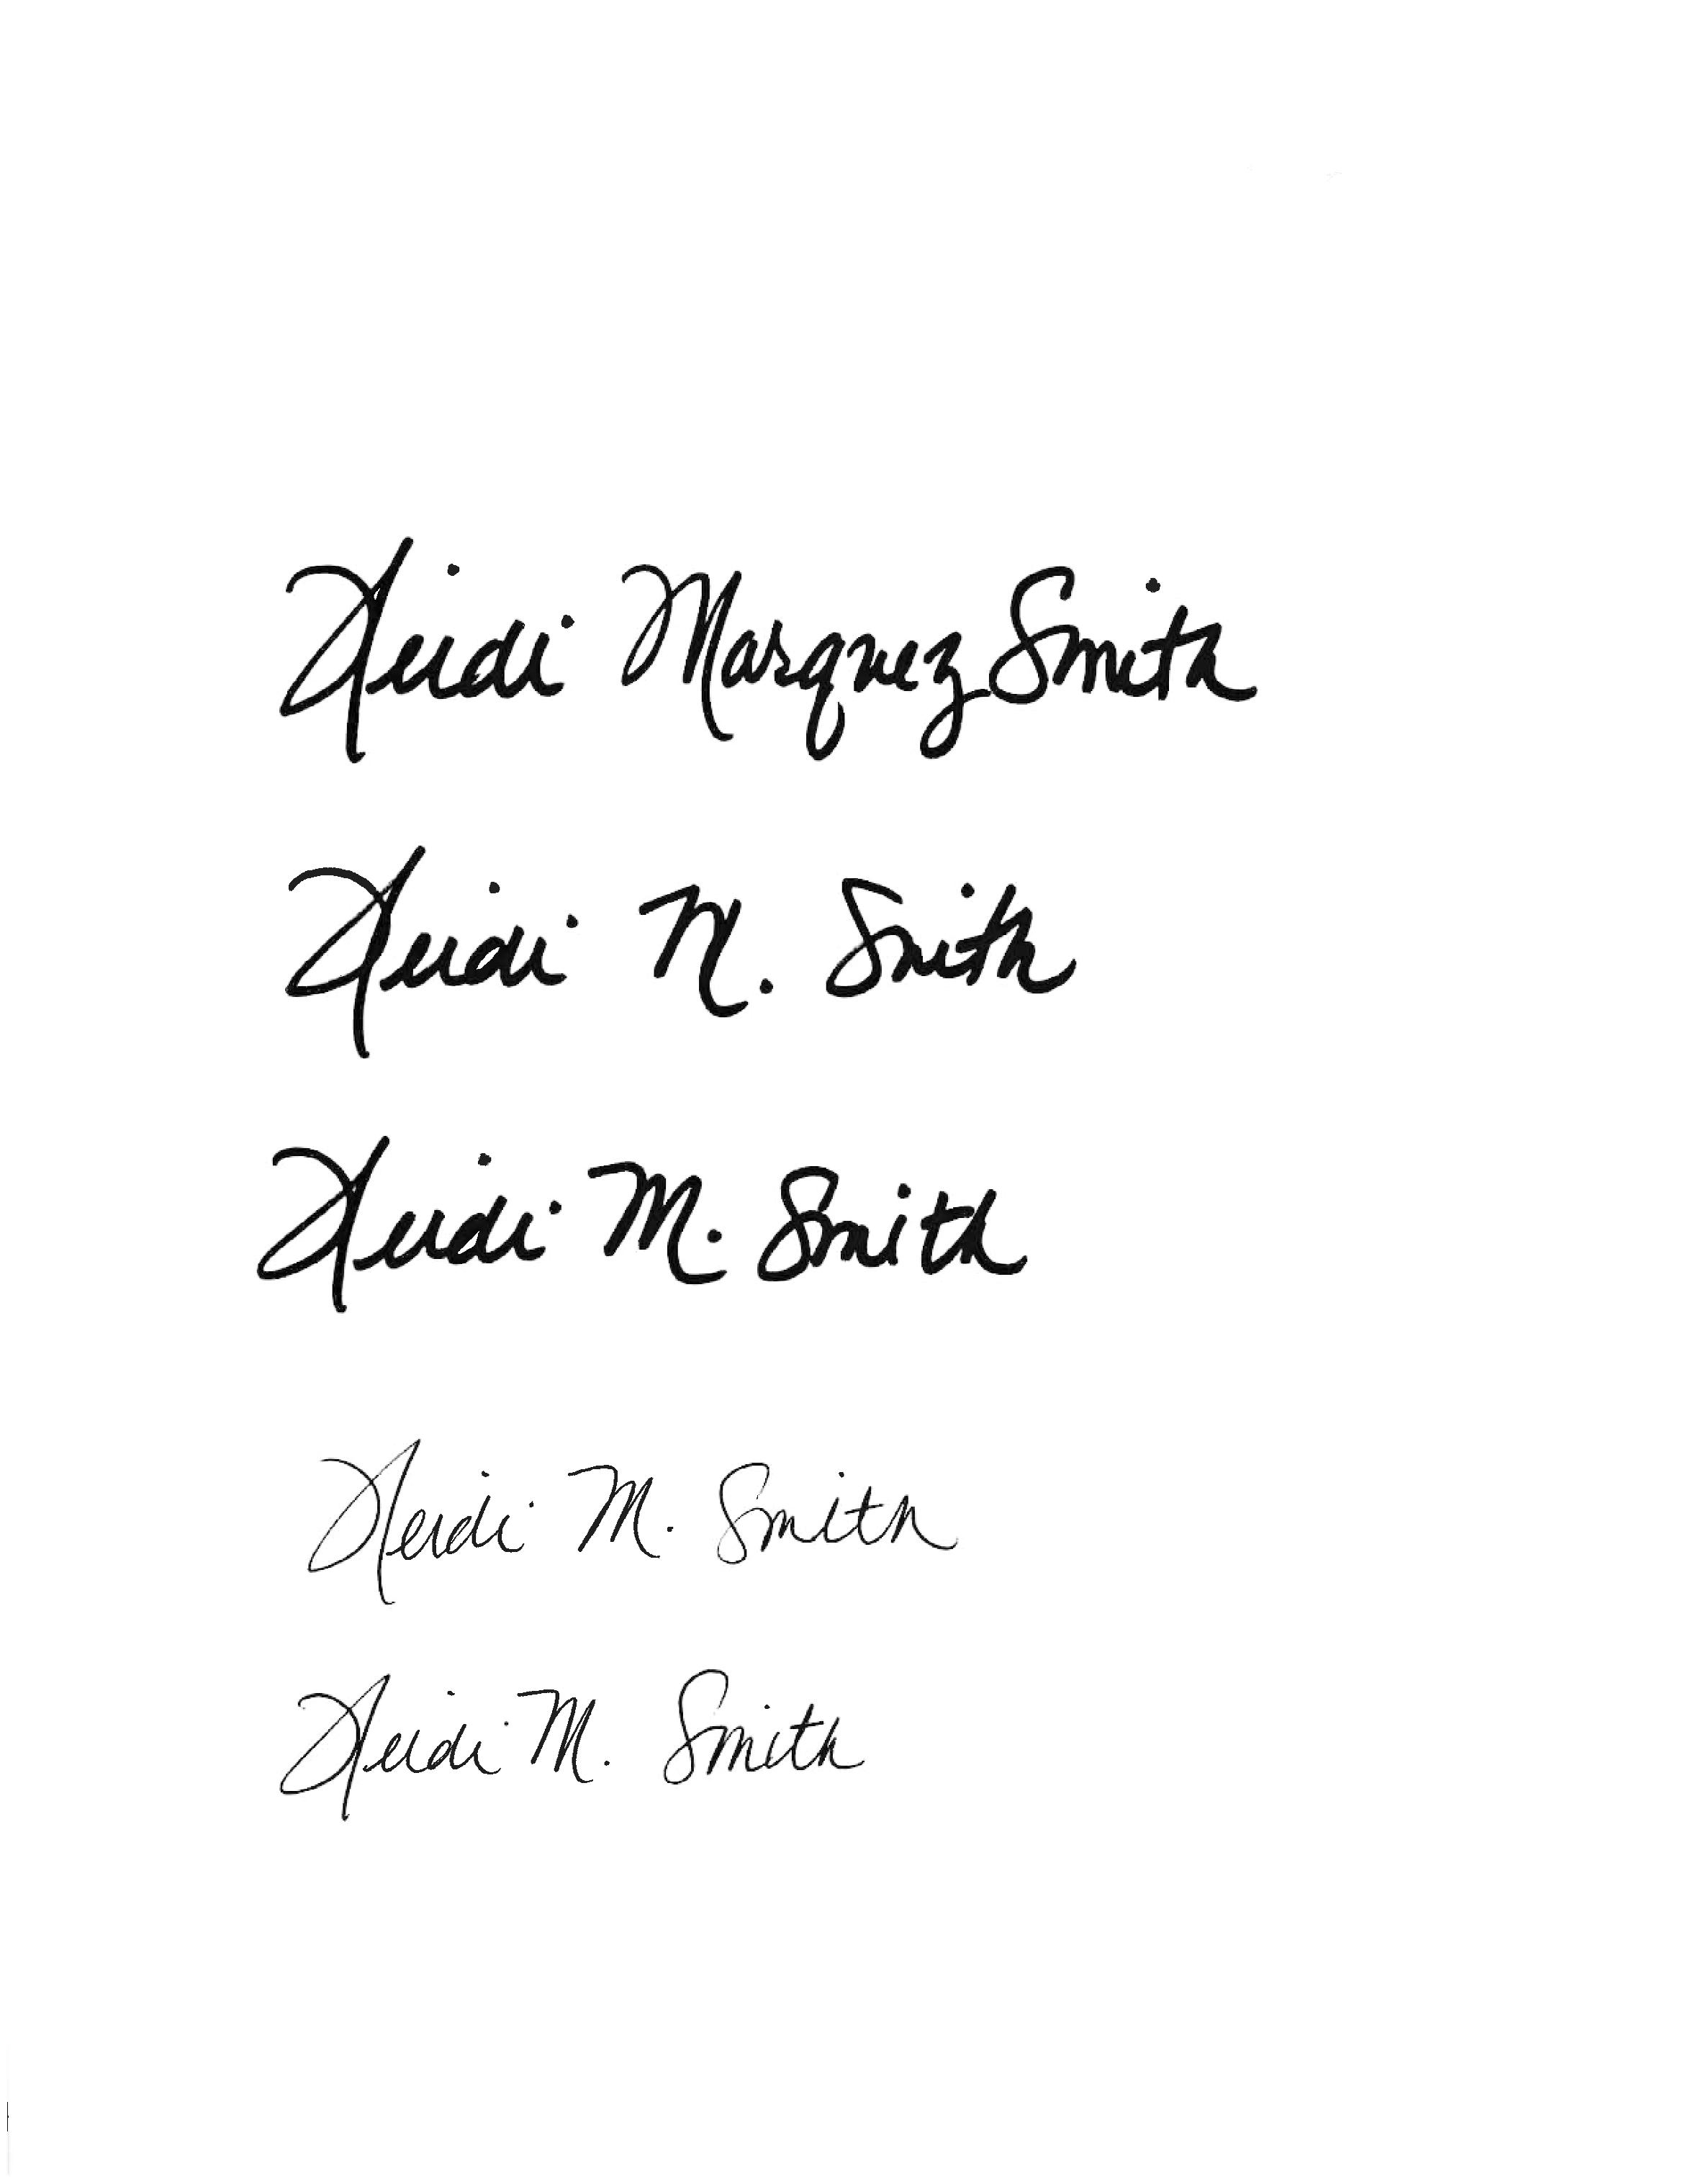 Heidi Marquez Smith
Heidi M. Smith
Heidi M. Smith
Heidi M. Smith
Heidi M. Smith